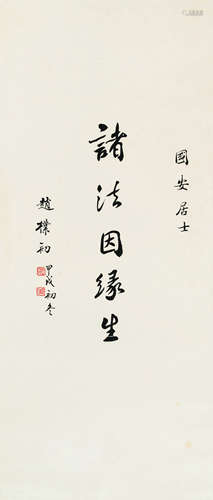 國安居士
諸法因緣生
趙樸初
甲戌初冬